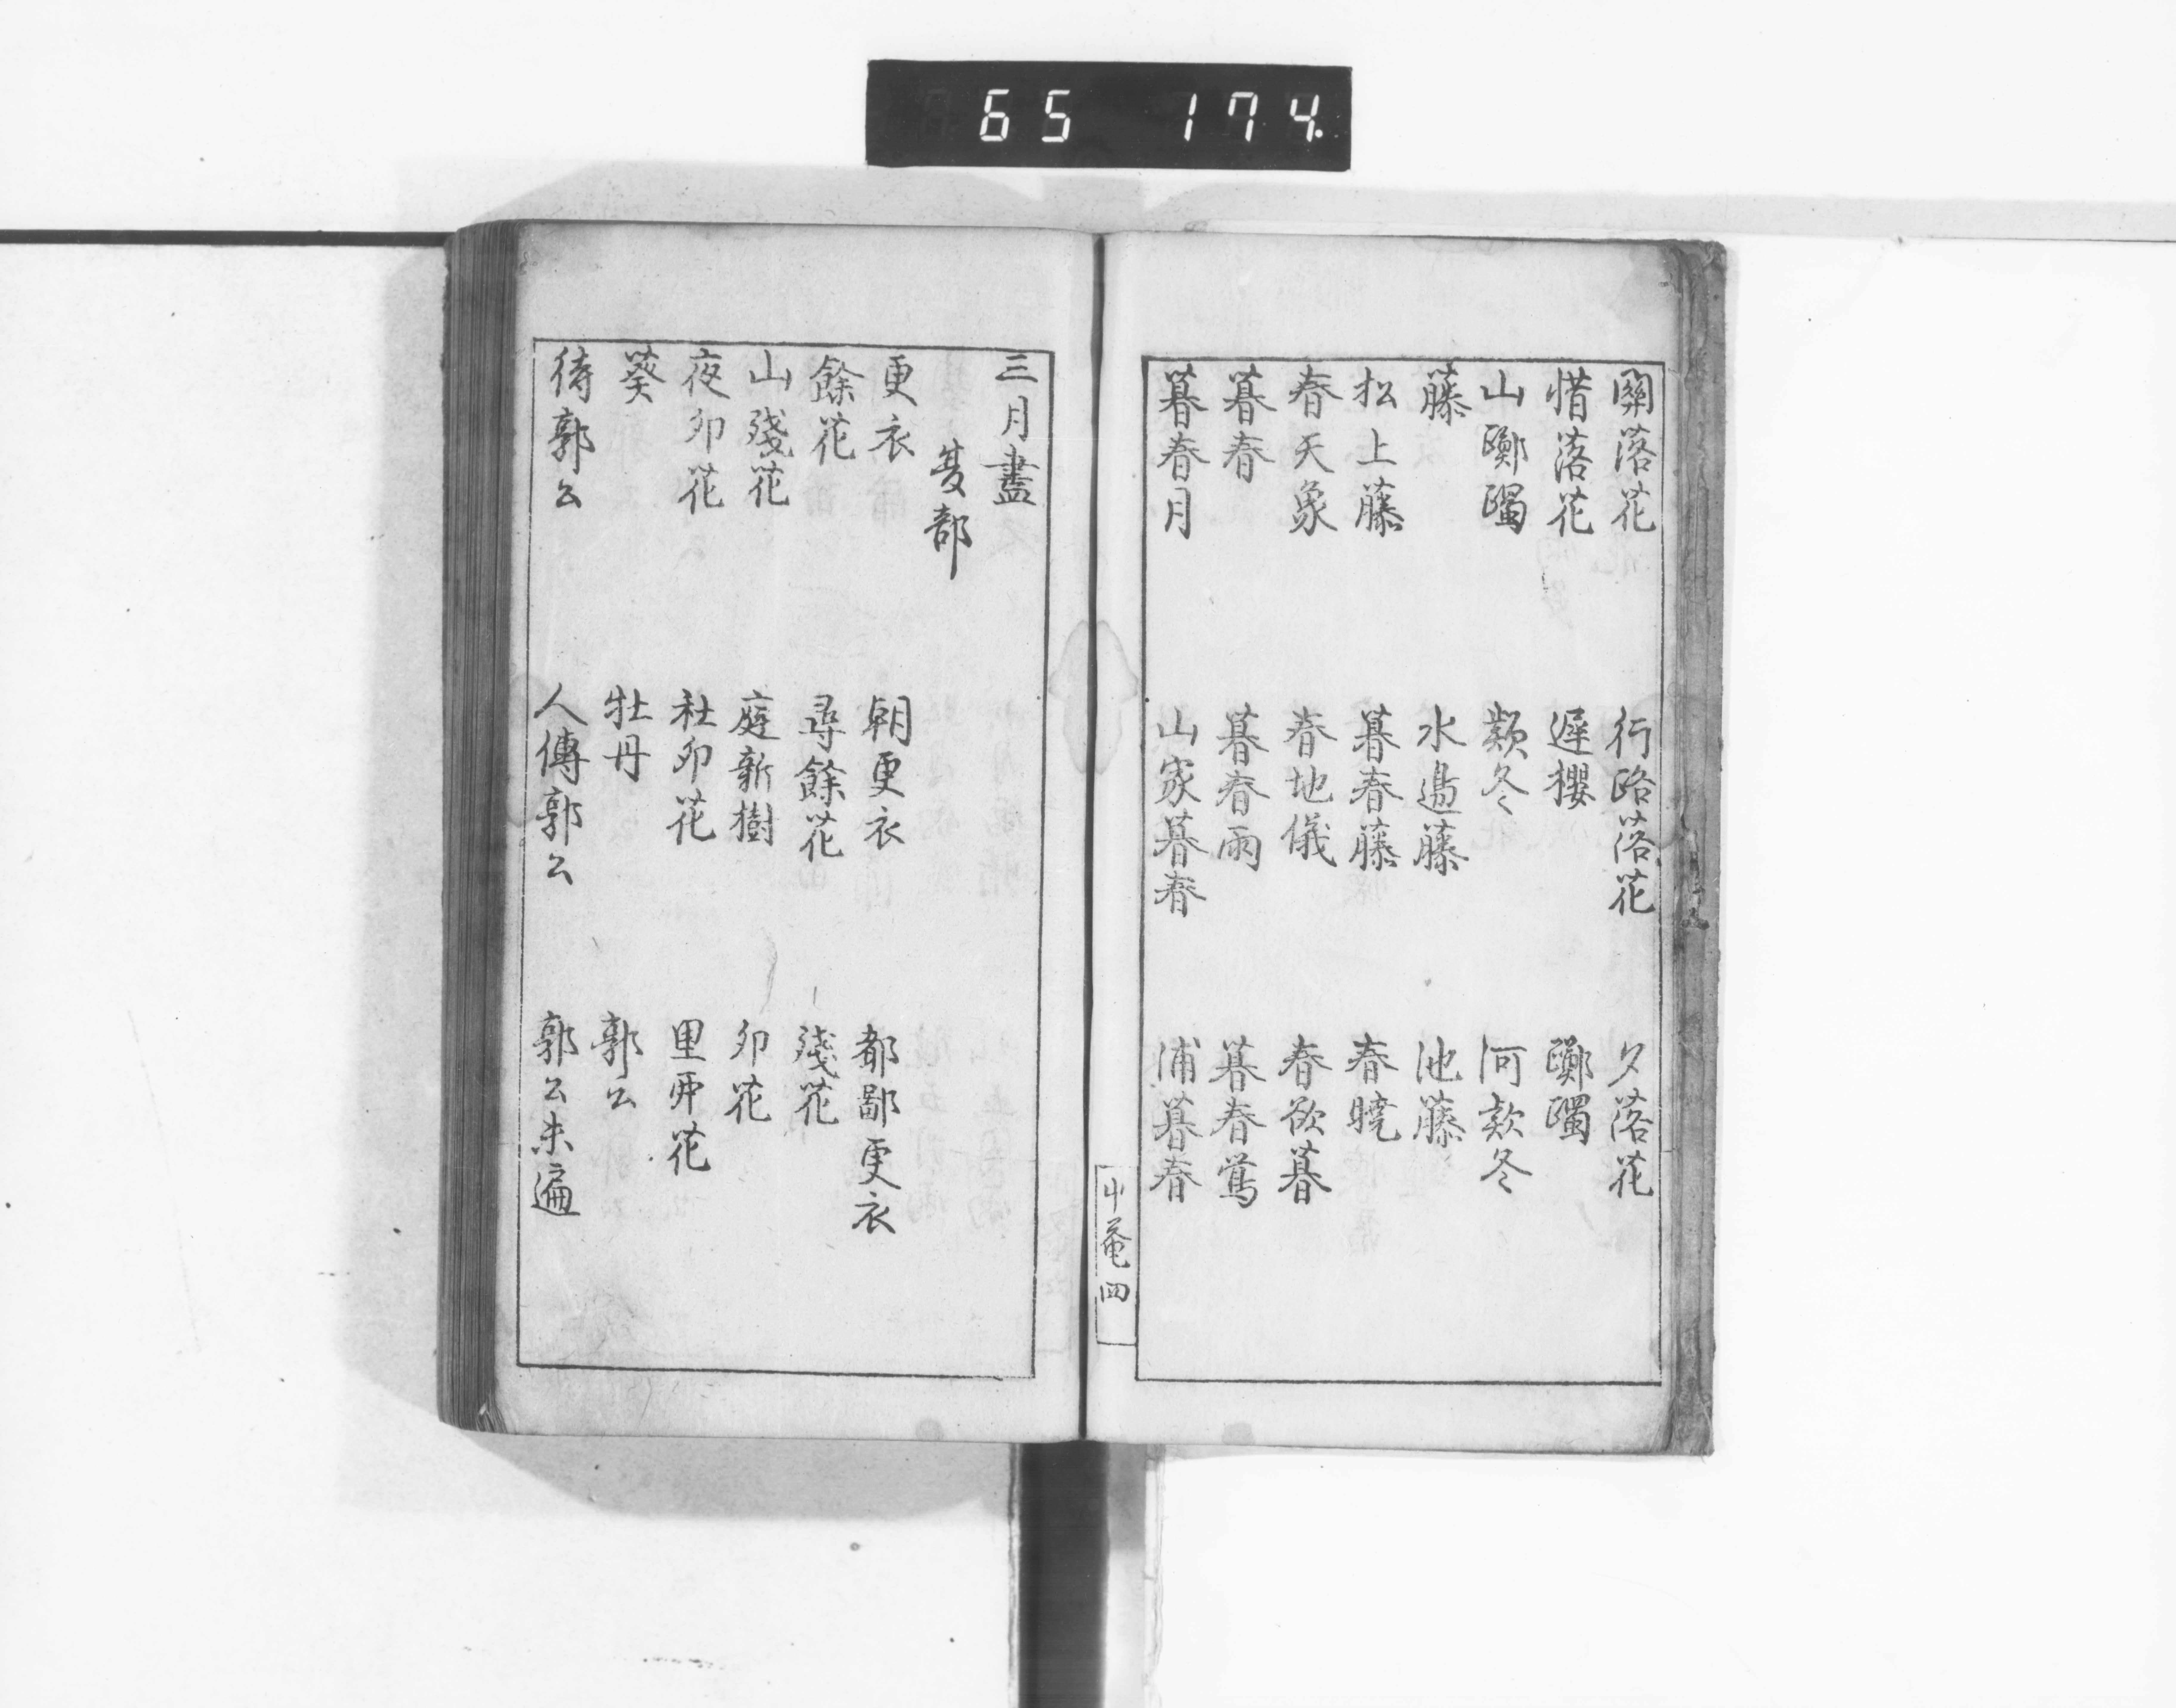 65 174.
關落花 行路落花 夕落花
惜落花 遅櫻 躑躅
山躑躅 款冬 河款冬
藤 水邉藤 池藤
松上藤 暮春藤 春曉
春天象 春地儀 春欲暮
暮春 暮春雨 暮春鶯
暮春月 山家暮春 浦暮春
屮菴四
三月盡
夏部
更衣 朝更衣 都鄙更衣
餘花 尋餘花 殘花
山殘花 庭新樹 卯花
夜卯花 社卯花 里卯花
葵 牡丹 郭公
待郭公 人傳郭公 郭公未遍